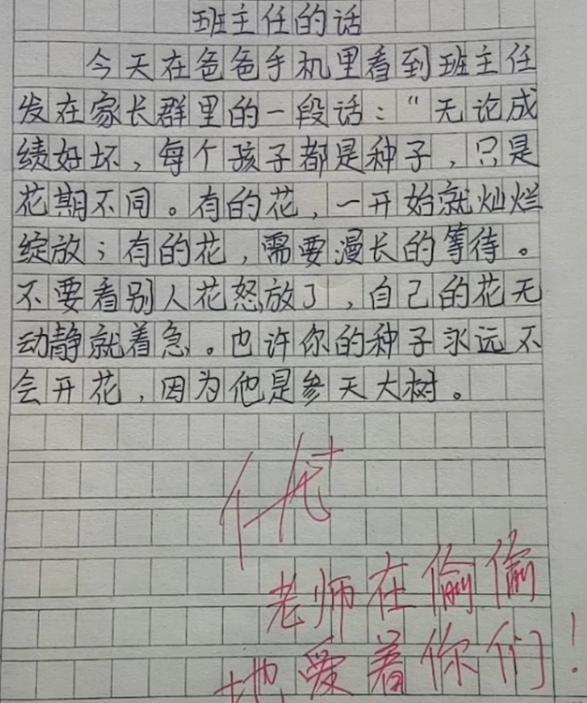 班主任的话
今天在爸爸手机里看到班主任
发在家长群里的一段话："无论成
绩好坏，每个孩子都是种子，只是
花期不同。有的花，一开始就灿烂
绽放；有的花，需要漫长的等待。
不要看别人花怒放了，自己的花无
动静就着急。也许你的种子永远不
会开花，因为他是参天大树。
优+
老师在偷偷
地爱着你们！